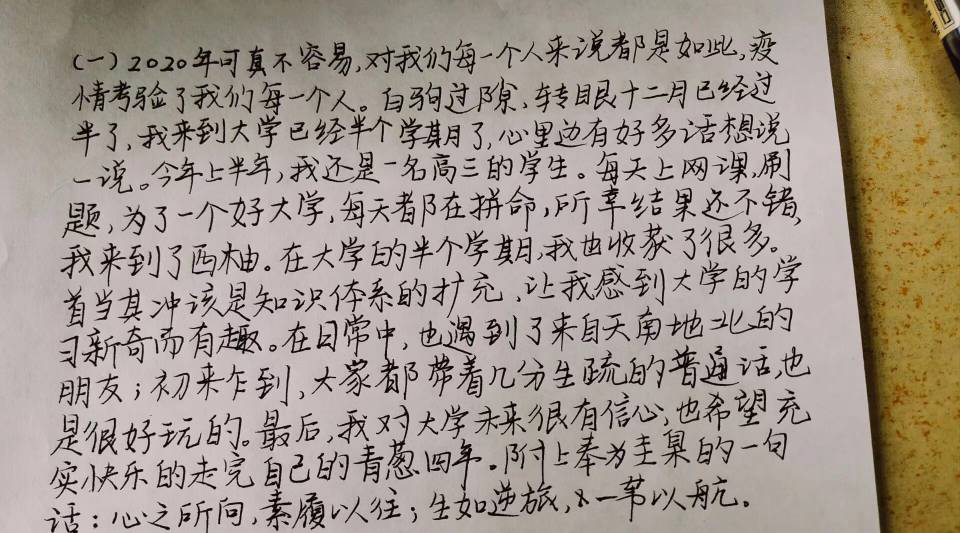 (一)2020年可真不容易,对我们每一个人来说都是如此,疫
情考验了我们每一个人。白驹过隙,转眼十二月已经过
半了,我来到大学已经半个学期了,心里边有好多话想说
一说。今年上半年,我还是一名高三的学生。每天上网课,刷
题,为了一个好大学,每天都在拼命,所幸结果还不错,
我来到了西柚。在大学的半个学期,我也收获了很多。
首当其冲该是知识体系的扩充,让我感到大学的学
习新奇而有趣。在日常中,也遇到了来自天南地北的
朋友;初来乍到,大家都带着几分生疏的普通话,也
是很好玩的。最后,我对大学未来很有信心,也希望充
实快乐的走完自己的青葱四年。附上奉为圭臬的一句
话:心之所向,素履以往;生如逆旅,一苇以航。